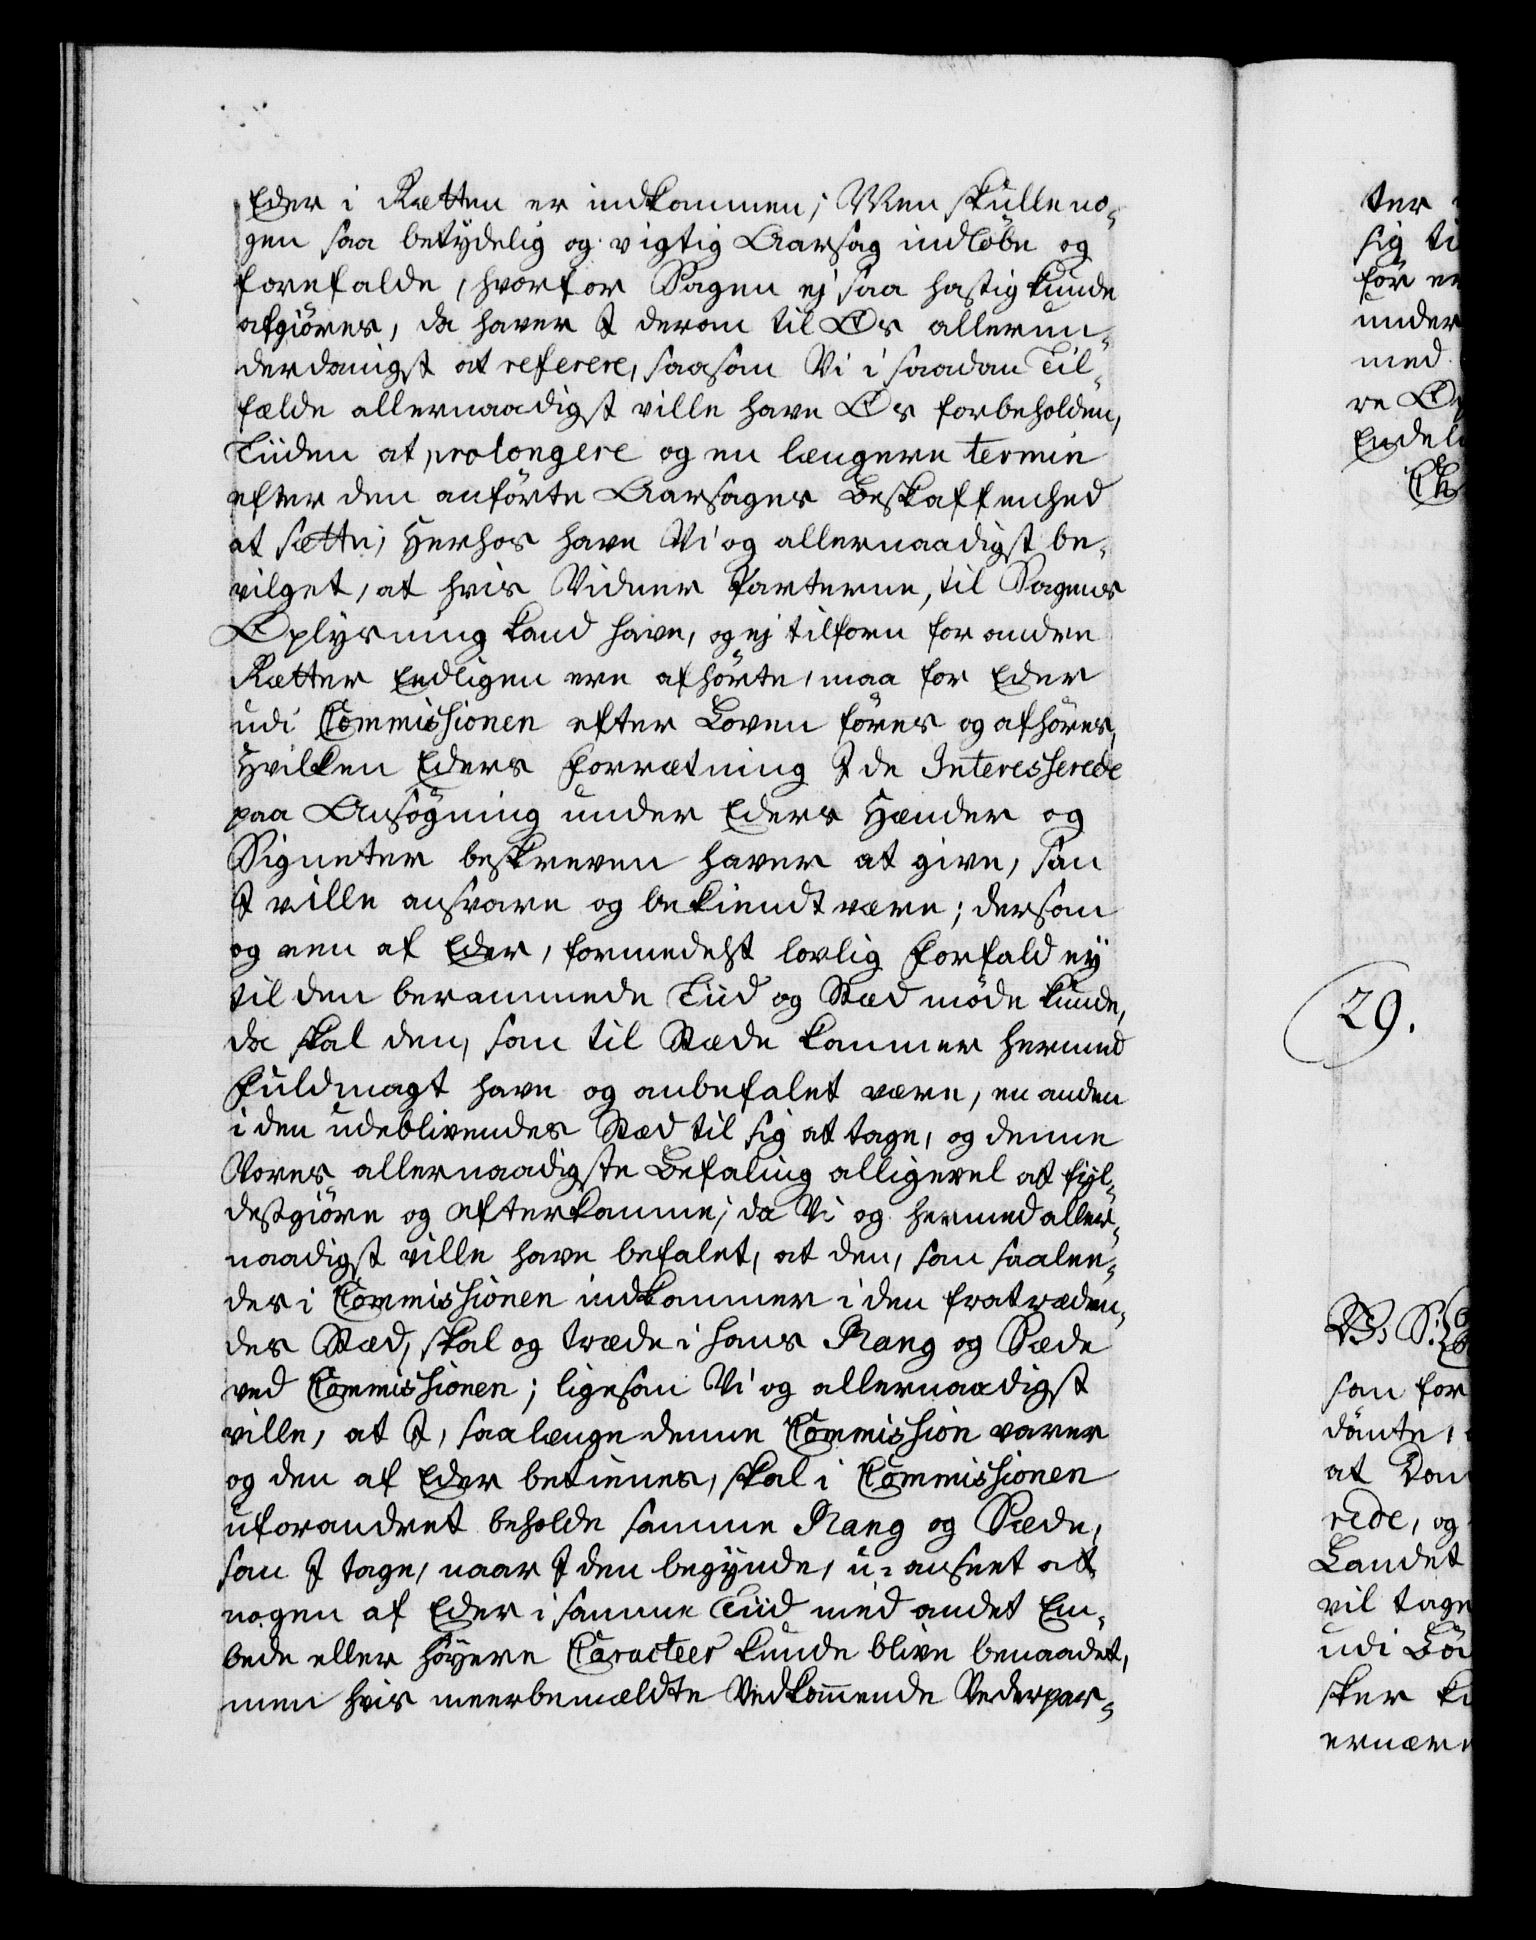 Eder i Rætten er indkommen; Men skulle no-
gen saa betydelig og vigtig Aarsag indløbe og
forefalde, hvorfor Sagen ej saa hastig kunde
afgiøres, da haver I derom til Os allerun-
derdanigst at referere, saasom Vi i saadan Til-
fælde allernaadigst ville have Os forbeholden,
Tiiden at prolongere og en længere termin
efter den anførte Aarsages Beskaffenhed
at sætte; Herhos have Vi og allernaadigst be-
vilget, at hvis Vidner Parterne, til Sagens
Oplysning kand have, og ej tilforn for andre
Rætter Eedligen ere afhørte, maa for Eder
udi Commissionen efter Loven føres og afhøres,
Hvilken Eders Forrætning I de Interesserede
paa Ansøgning under Eders Hænder og
Signeter beskreven haver at give, som
I ville ansvare og bekiendt være; dersom
og een af Eder, formedelst lovlig Forfald ey
til den berammede Tiid og Stæd møde kunde,
da skal den, som til Stæde kommer hermed
Fuldmagt have og anbefalet være, en anden
i den udeblivendes Stæd til sig at tage, og denne
Vores allernaadigste Befaling alligevel at fyl-
destgiøre og efterkomme; da Vi og hermed aller-
naadigst ville have befalet, at den, som saalee-
des i Commissionen indkommer i den fratræden-
des Stæd, skal og træde i hans Rang og Sæde
ved Commissionen; ligesom Vi og allernaadigst
ville, at I, saalænge denne Commission varer
og den af Eder betienes, skal i Commissionen
uforandret beholde samme Rang og Sæde,
som I tage, naar I den begynde, u-anseet at
nogen af Eder i samme Tiid med andet Em-
bede eller høyere Caracteer kunde blive benaadet,
men hvis meerbemældte Vedkommende Vederpar-
ter
sig ti
før er
under
med
re O
Endel
29.
som for
dømte,
at Dom
rede, og
Landet
vil tage
udi
sker
ernær